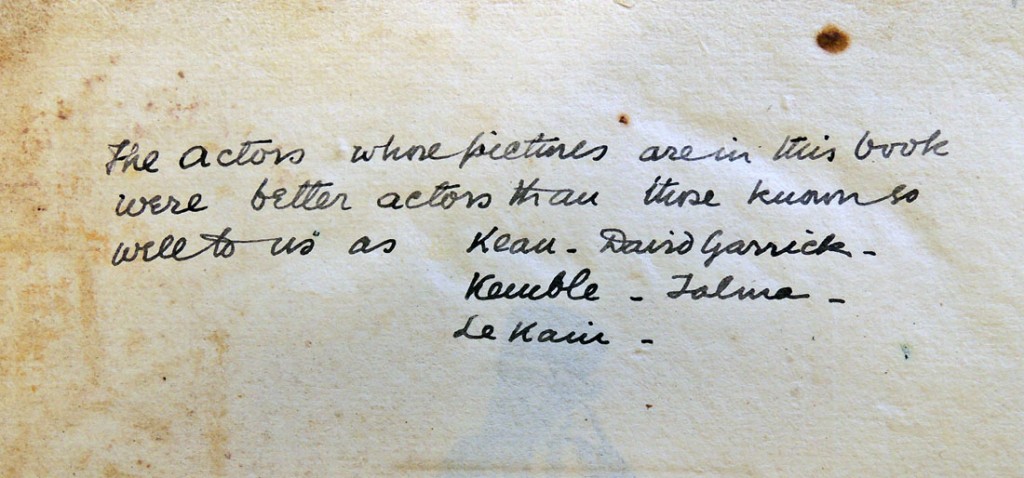 The actors whose pictures are in this book
were better actors than those known so
well to us as Kean - David Garrick -
Kemble - Talma -
Le Kain -